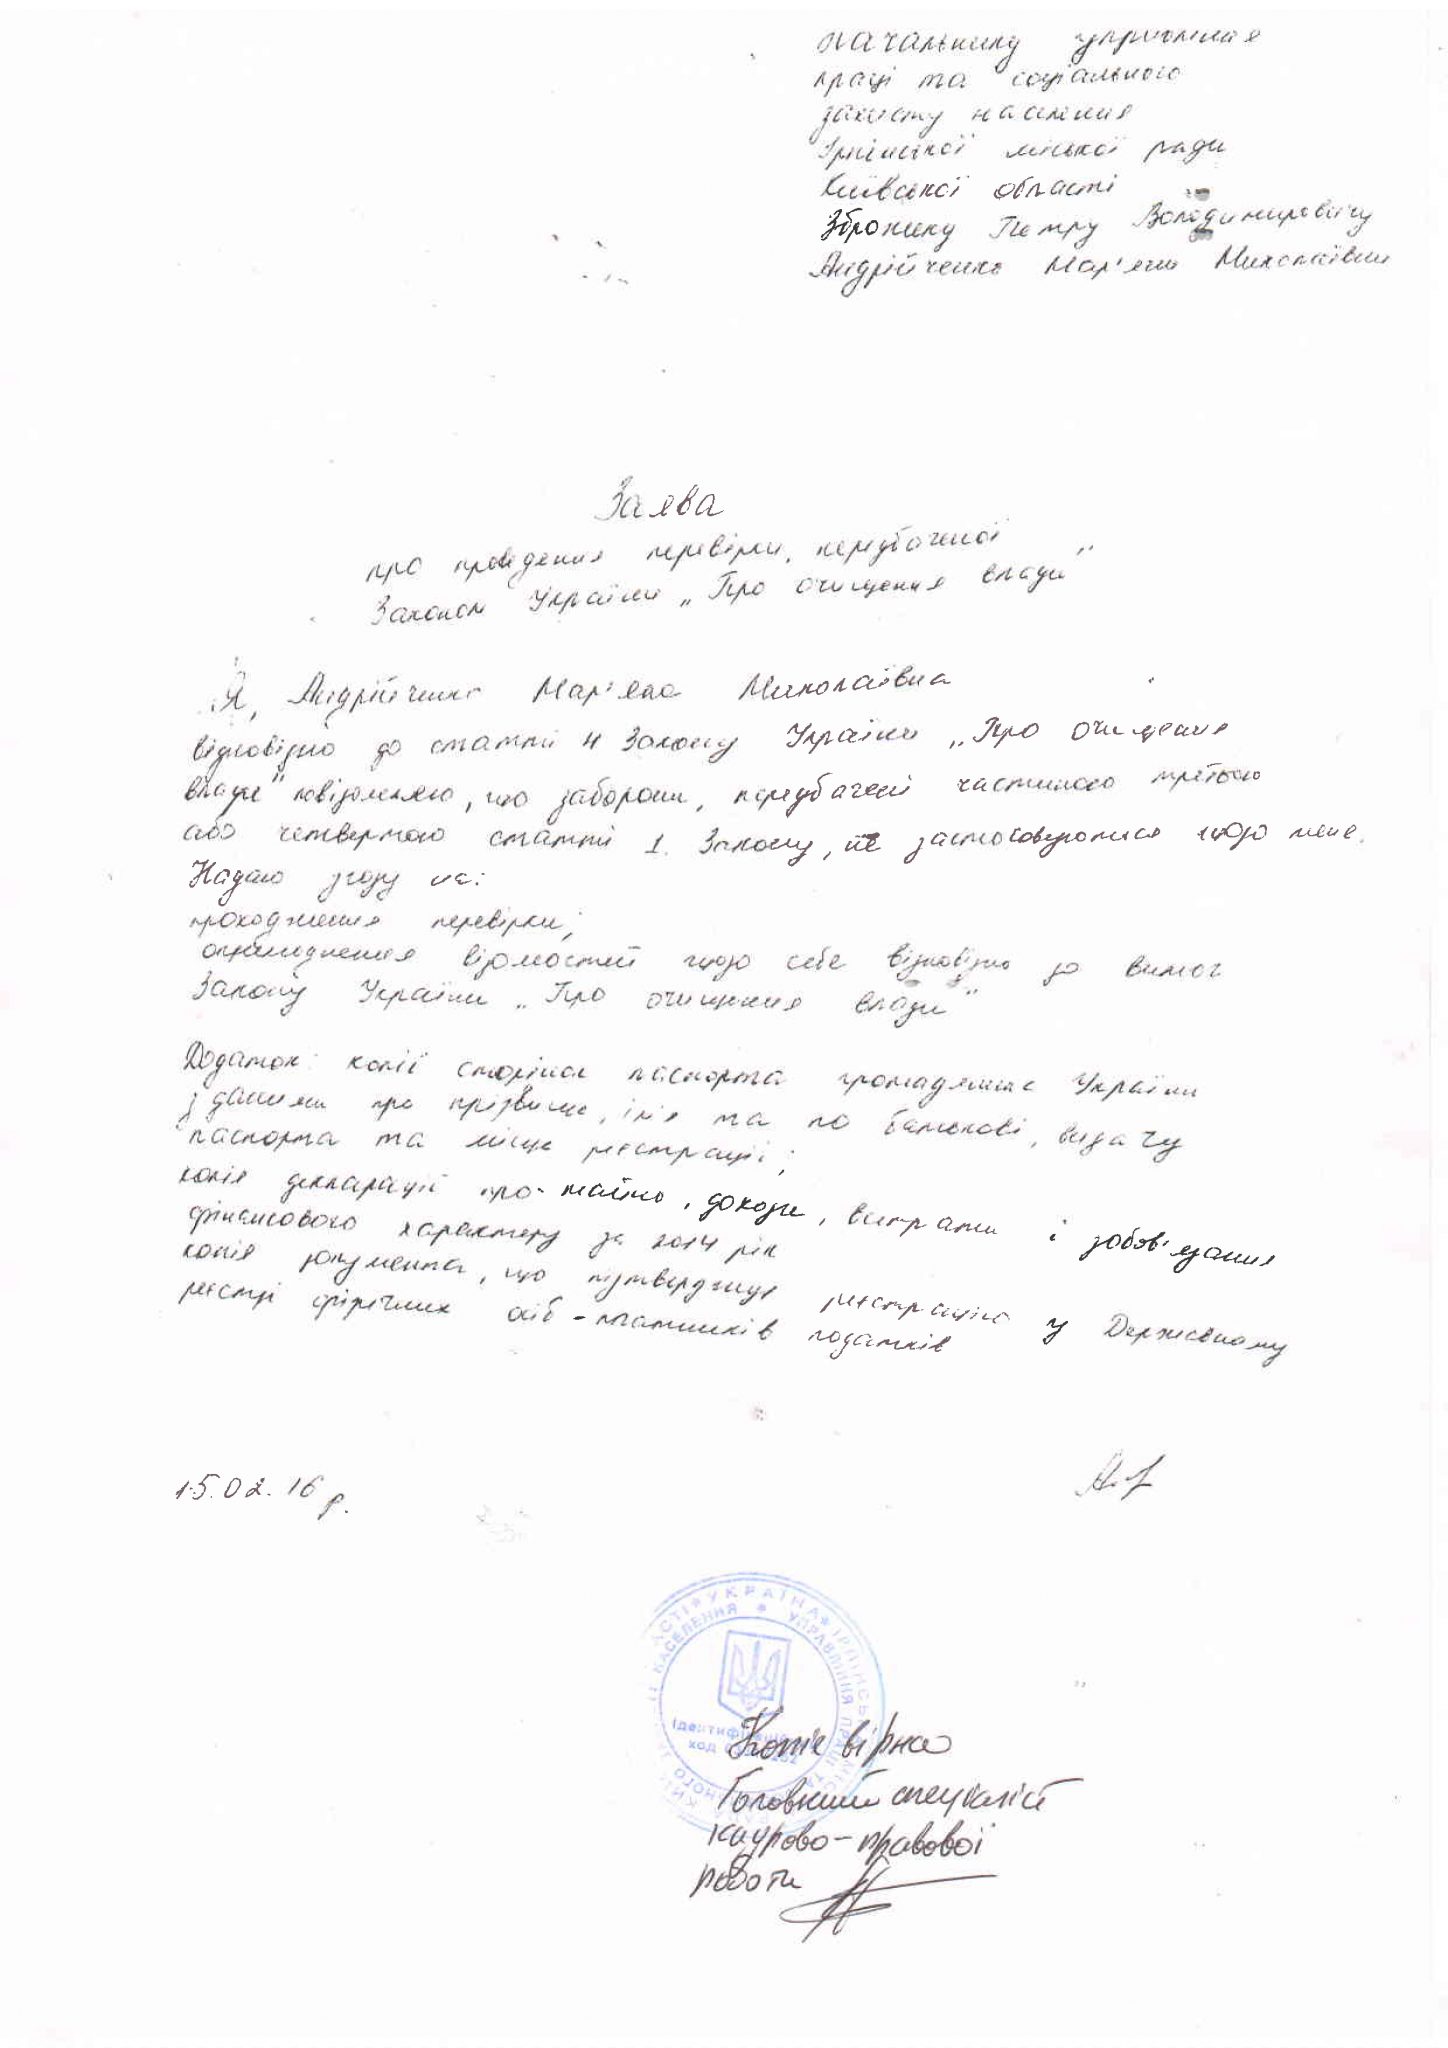 начальнику управління
праці та соціального
захисту населення
Ірпінської міської ради
Київської області
Збронику Петру Володимировичу
Андрійченко Мар'яни Миколаївни
Заява
про проведення перевірки, передбаченої
Законом України „Про очищення влади"
Я, Андрійченко Мар'яна Миколаївна
відповідно до статті 4 Закону України „Про очищення
влади" повідомляю, що заборони, передбачені частиною третьою
або четвертою статті 1. Закону, не застосовуються щодо мене.
Надаю згоду на:
проходження перевірки;
оприлюднення відомостей щодо себе відповідно до вимог
Закону України „Про очищення влади"
Додаток: копії сторінок паспорта громадянина України
з даними про прізвище, ім'я та по батькові, видачу
паспорта та місце реєстрації;
копія декларації про майно, доходи, витрати і зобов'язання
фінансового характеру за 2014 рік
копія документа, що підтверджує реєстрацію у Державному
реєстрі фізичних осіб-платників податків
15.02.16 р.
УКРАЇНА * ІРПІНСЬК
НАСЕЛЕННЯ * УПРАВЛІННЯ ПРАЦІ ТА
код
Копія вірна
Головний спеціаліст
кадрово-правової
роботи